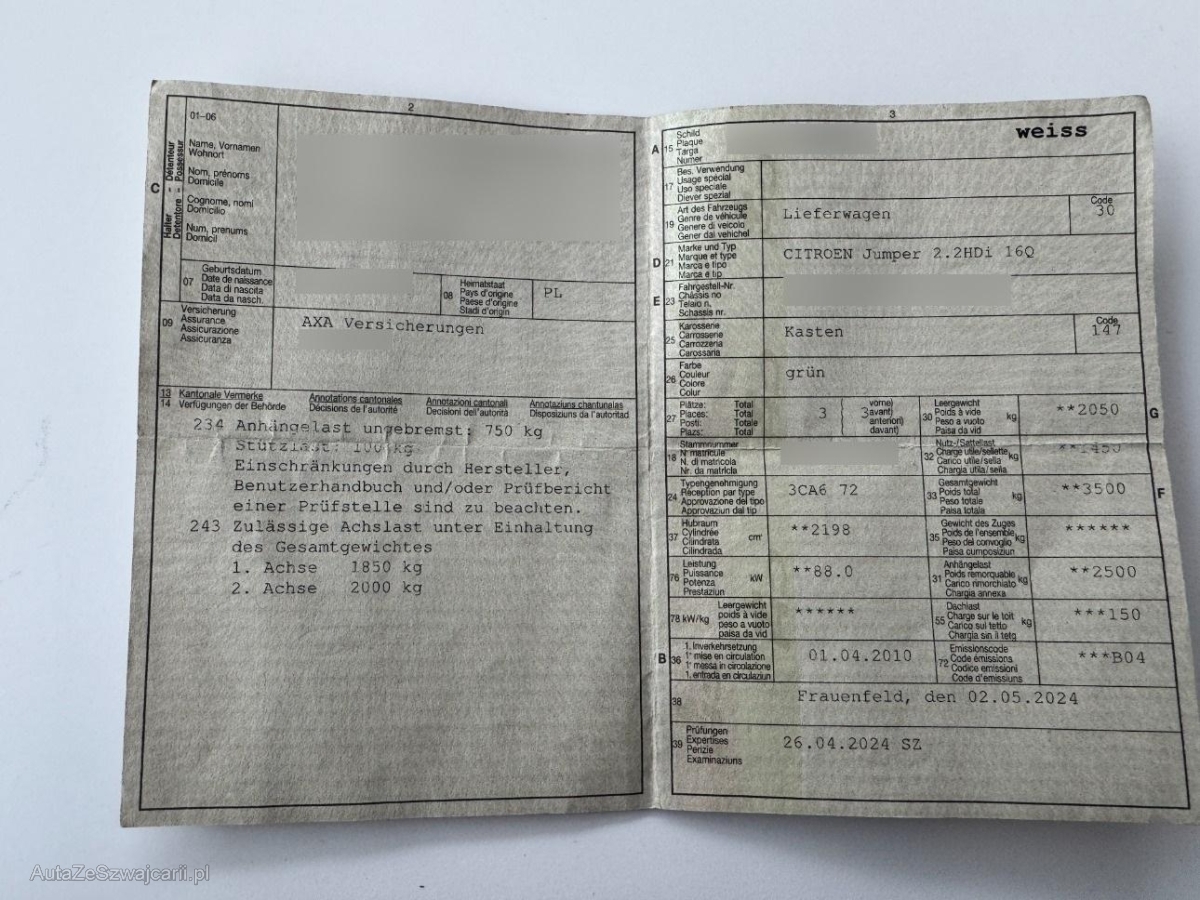 2
01-06
Halter Détenteur
Detentore - Possessur
C
Name, Vornamen
Wohnort
Nom, prénoms
Domicile
Cognome, nomi
Domicilio
Num, prenums
Domicil
07
Geburtsdatum
Date de naissance
Data di nascita
Data da nasch.
08
Heimatstaat
Pays d'origine
Paese d'origine
Stadi d'origin
PL
09
Versicherung
Assurance
Assicurazione
Assicuranza
AXA Versicherungen
13 Kantonale Vermerke Annotations cantonales Annotazioni cantonali Annotaziuns chantunalas
14 Verfügungen der Behörde Décisions de l'autorité Decisioni dell'autorità Disposiziuns da l'autoritad
234 Anhängelast ungebremst: 750 kg
Stützlast: 100 kg
Einschränkungen durch Hersteller,
Benutzerhandbuch und/oder Prüfbericht
einer Prüfstelle sind zu beachten.
243 Zulässige Achslast unter Einhaltung
des Gesamtgewichtes
1. Achse 1850 kg
2. Achse 2000 kg
3
A 15
Schild
Plaque
Targa
Numer
weiss
17
Bes. Verwendung
Usage spécial
Uso speciale
Diever spezial
19
Art des Fahrzeugs
Genre de véhicule
Genere di veicolo
Gener dal vehichel
Lieferwagen
Code
30
D 21
Marke und Typ
Marque et type
Marca e tipo
Marca e tip
CITROEN Jumper 2.2HDi 16Q
E 23
Fahrgestell-Nr.
Châssis no
Telaio n.
Schassis nr.
25
Karosserie
Carrosserie
Carrozzeria
Carossaria
Kasten
Code
147
26
Farbe
Couleur
Colore
Colur
grün
27
Plätze: Total
Places: Total
Posti: Totale
Plazs: Total
3
3
vorne)
avant)
anteriori)
davant)
30
Leergewicht
Poids à vide
Peso a vuoto
Paisa da vid
kg
**2050
G
18
Stammnummer
N° matricule
N. di matricola
Nr. da matricla
32
Nutz-/Sattellast
Charge utile/sellette
Carico utile/sella
Chargia utila/sella
kg
**1450
24
Typengenehmigung
Réception par type
Approvazione del tipo
Approvaziun dal tip
3CA6 72
33
Gesamtgewicht
Poids total
Peso totale
Paisa totala
kg
**3500
F
37
Hubraum
Cylindrée
Cilindrata
Cilindrada
cm³
**2198
35
Gewicht des Zuges
Poids de l'ensemble
Peso del convoglio
Paisa cumposiziun
kg
******
76
Leistung
Puissance
Potenza
Prestaziun
kW
**88.0
31
Anhängelast
Poids remorquable
Carico rimorchiato
Chargia annexa
kg
**2500
78 kW/kg
Leergewicht
poids à vide
peso a vuoto
paisa da vid
******
55
Dachlast
Charge sur le toit
Carico sul tetto
Chargia sin il tetg
kg
***150
B 36
1. Inverkehrsetzung
1re mise en circulation
1a messa in circolazione
1. entrada en circulaziun
01.04.2010
72
Emissionscode
Code émissions
Codice emissioni
Code d'emissiuns
***B04
38
Frauenfeld, den 02.05.2024
39
Prüfungen
Expertises
Perizie
Examinaziuns
26.04.2024 SZ
AutaZeSzwajcarii.pl